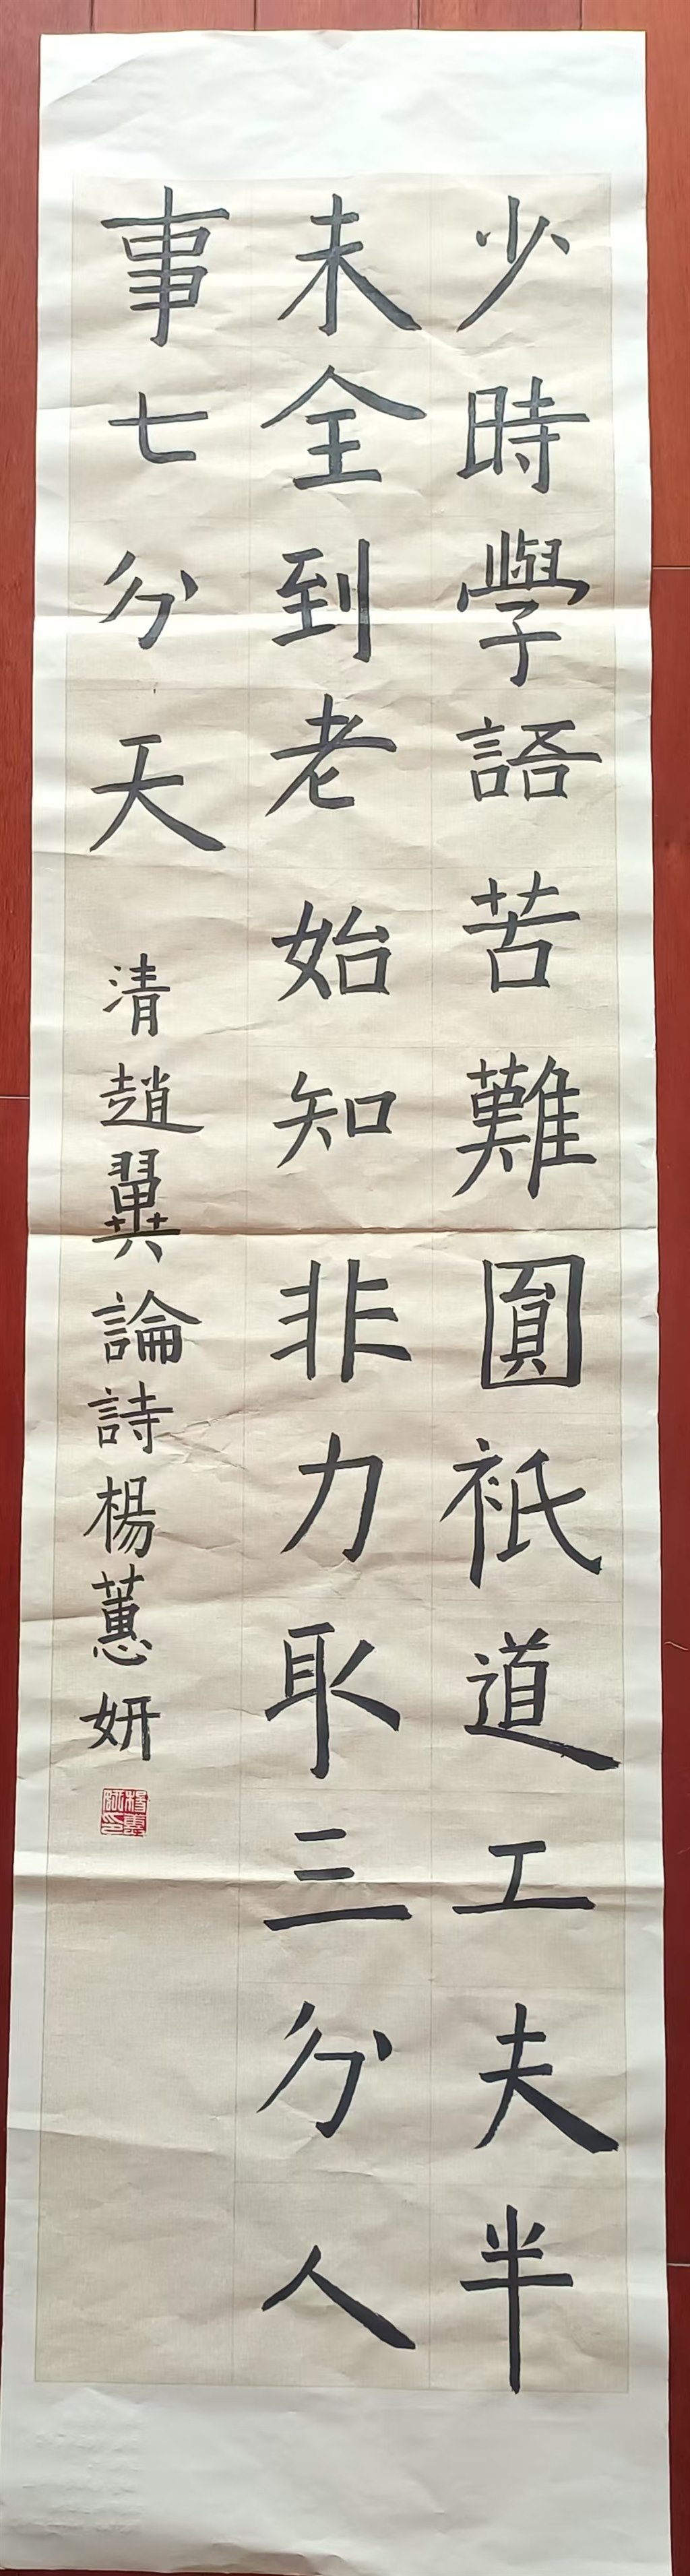 少時學語苦難圓衹道工夫半
未全到老始知非力取三分人
事七分天
清趙翼論詩楊蕙妍